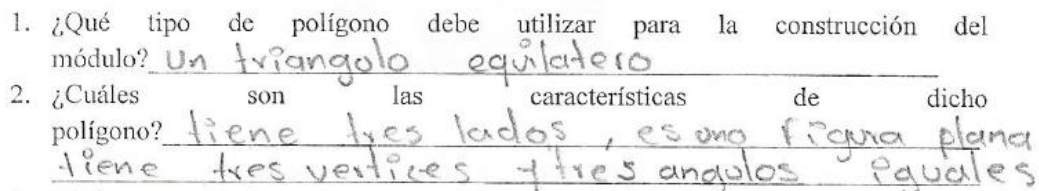 1. ¿Qué tipo de polígono debe utilizar para la construcción del
módulo? Un triangulo equilatero
2. ¿Cuáles son las características de dicho
polígono? tiene tres lados, es una figura plana
tiene tres vertices y tres angulos iguales